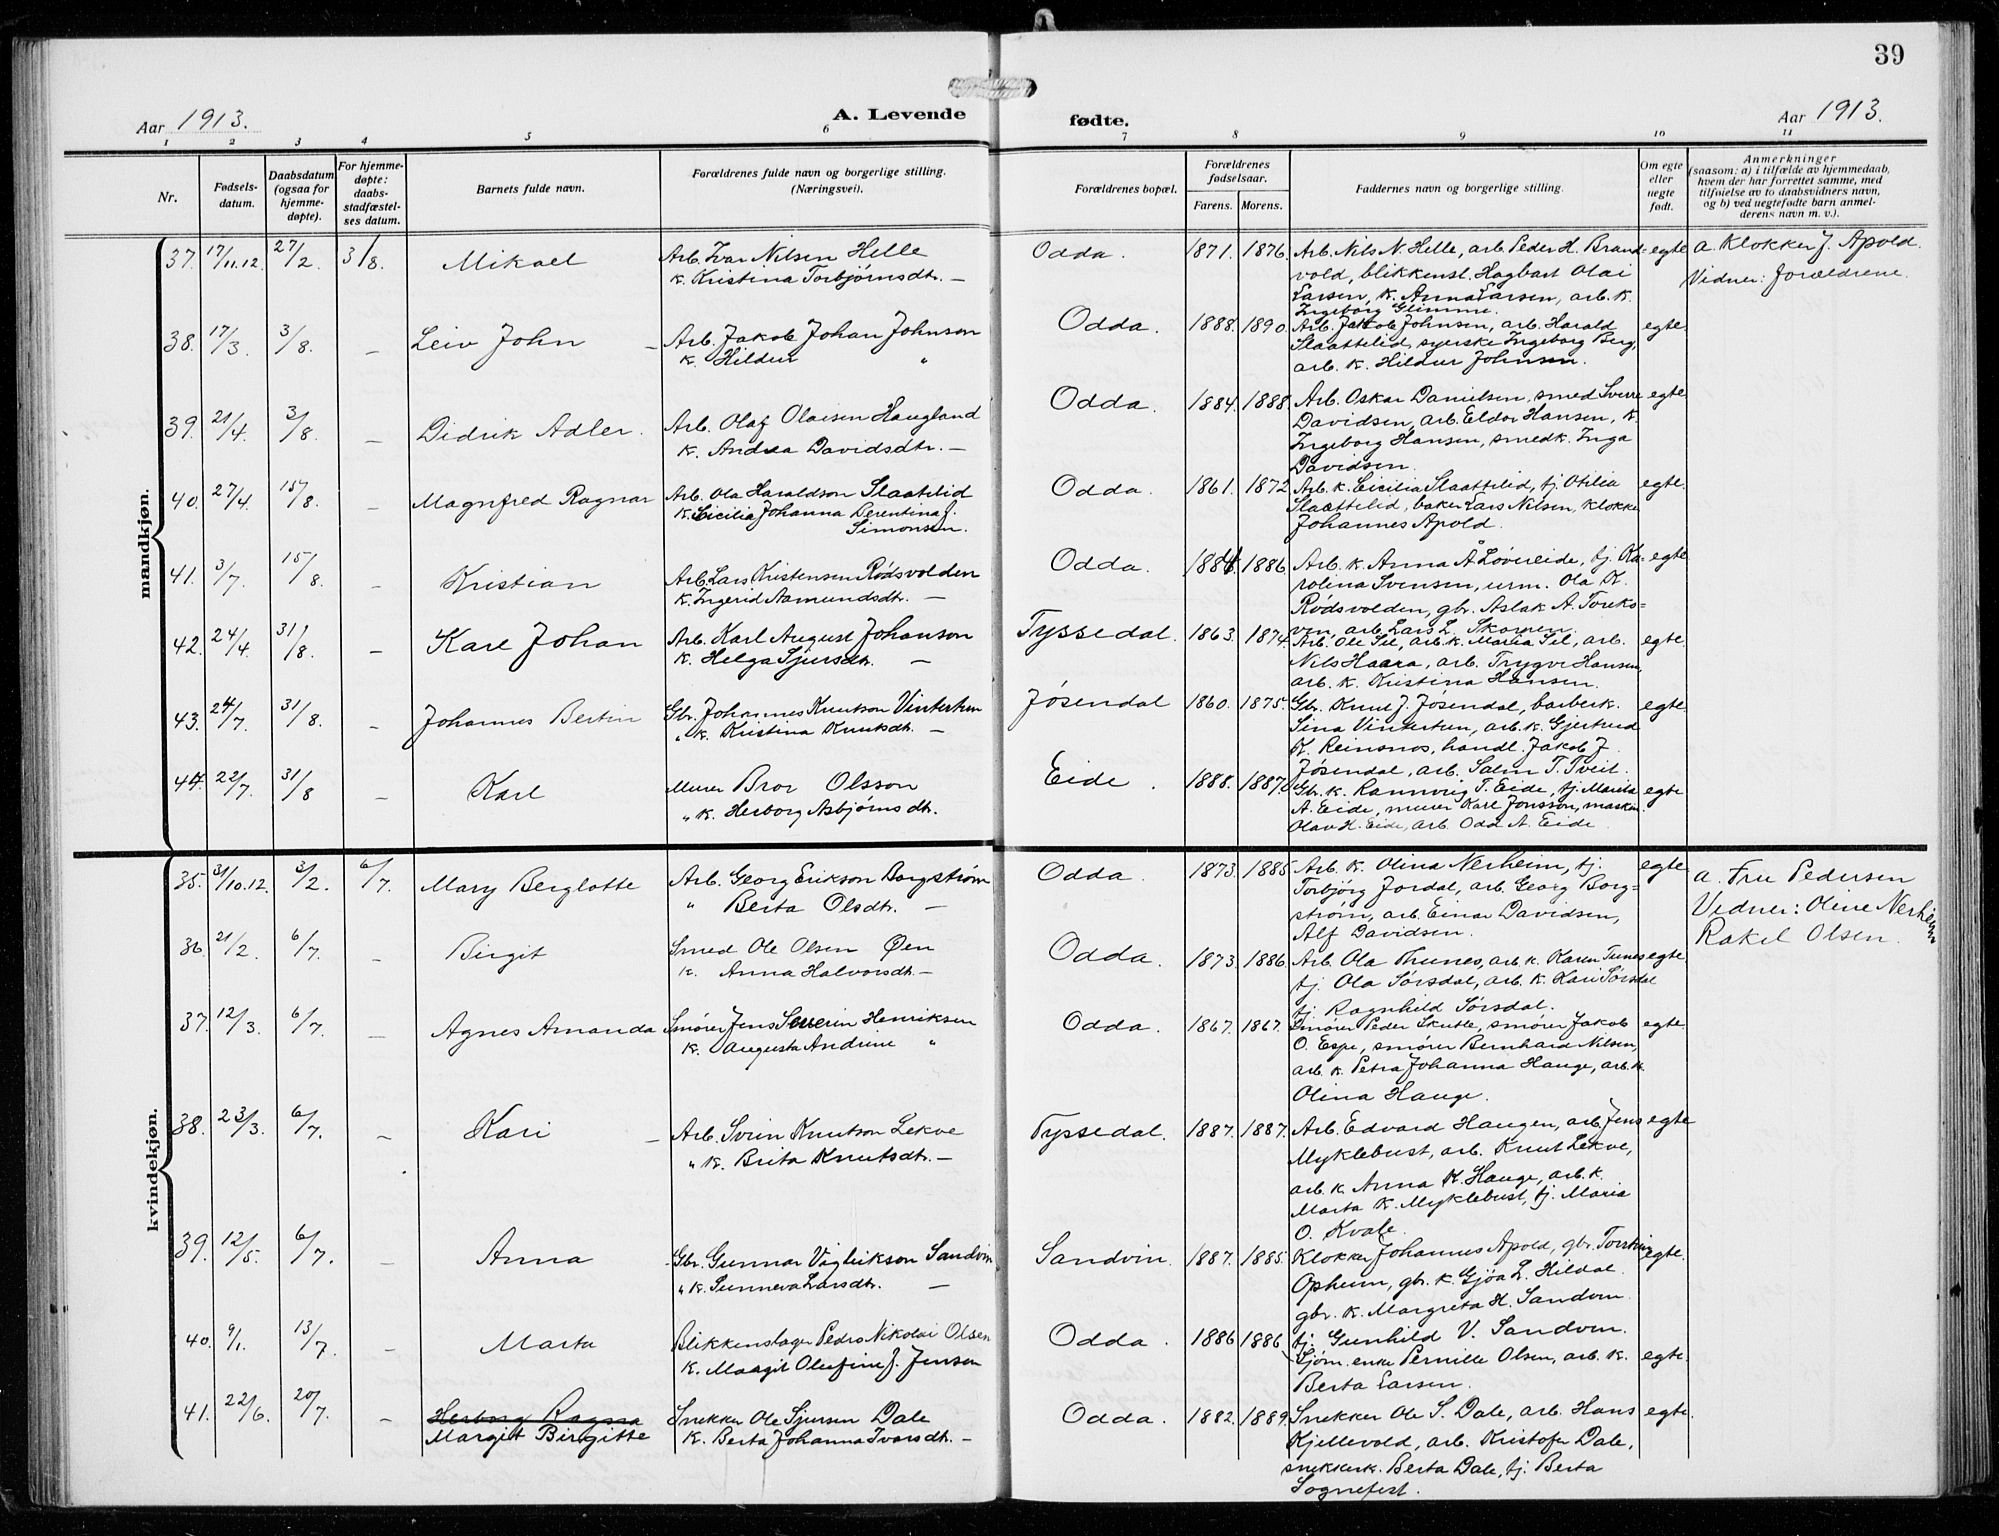 39
Aar 1913.
A. Levende
fødte.
Aar 1913.
1 2 3 4 5 6 7 8 9 10 11
Nr.
Fødsels-
datum.
Daabsdatum
(ogsaa for
hjemme-
døpte).
For hjemme-
døpte:
daabs-
stadfæstel-
ses datum.
Barnets fulde navn.
Forældrenes fulde navn og borgerlige stilling.
(Næringsvei).
Forældrenes bopæl.
Forældrenes
fødselsaar.
Farens. Morens.
Faddernes navn og borgerlige stilling.
Om egte
eller
uegte
født.
Anmerkninger
(saasom: a) i tilfælde av hjemmedaab,
hvem der har forrettet samme, med
tilføielse av to daabsvidners navn,
og b) ved uegtefødte barn anmel-
derens navn m. v.).
mandkjøn.
37. 17/11.12. 27/2. 3/8. Mikael
Arb. Ivar Nilsen Helle
k. Kristina Torbjørnsdtr. —
Odda. 1871. 1876. egte
Arb. Nils N. Helle, arb. Peder H. Brand-
vold, blikkensl. Hagbart Olai
Larsen, k. Anna Larsen, arb. k.
Ingeborg Glimme.
a. Klokker J. Apold.
Vidner: Forældrene.
38. 17/3. 3/8. — Leiv John —
Arb. Jakob Johan Johnson
k. Hildur "
Odda. 1888. 1890. egte.
Arb. Jakob Johnsen, arb. Harald
Slaattelid, syerske Ingeborg Berg,
arb. k. Hildur Johnsen.
39. 21/4. 3/8. — Didrik Adler.
Arb. Olaf Olaisen Haugland
k. Andrea Davidsdtr. —
Odda. 1884. 1888. egte.
Arb. Oskar Danielsen, smed Sverre
Davidsen, arb. Eldor Hansen, k.
Ingeborg Hansen, smedk. Inga
Davidsen.
40. 27/4. 15/8. — Magnfred Ragnar
Arb. Ola Haraldson Slaatelid
k. Cicilia Johanna Berentina f.
Simonsen.
Odda. 1861. 1872. egte.
Arb. k. Cicilia Slaattelid, tj. Otilia
Slaattelid, baker Lars Nilsen, klokker
Johannes Apold.
41. 3/7. 15/8. — Kristian
Arb. Lars Kristensen Rødsvolden
k. Ingerid Aamundsdtr. —
Odda. 1884. 1886. egte.
Arb. k. Anna Å. Løvereide, tj. Ka-
rolina Svensen, urm. Ola K.
Rødsvolden, gbr. Aslak A.
arb. Lars L.
42. 24/4. 31/8. — Karl Johan
Arb. Karl August Johanson
k. Helga Sjursdtr. —
Tyssedal. 1863. 1874. egte.
Arb. Ole Sil, arb. k. Maria Sil, arb.
Nils Haara, arb. Trygve Hansen,
arb. k. Kristina Hansen.
43. 24/7. 31/8. — Johannes Bertin
Gbr. Johannes Knutson Vintertun
" k. Kristina Knutsdtr. —
Jøsendal 1860. 1875. egte.
Gbr. Knut J. Jøsendal, barberk.
Sina Vintertun, arb. k. Gjertrud
K. Reinsnos, handl. Jakob J.
Jøsendal, arb. Salm. T. Tveit.
44. 22/7. 31/8 — Karl
Murer Bror Olsson
" k. Herborg Asbjørnsdtr.
Eide. 1888. 1887. egte
Gbr. k. Rannveig T. Eide, tj. Marita
A. Eide, murer Karl Jonsson, maskin.
Olav H. Eide, arb. Odd A. Eide.
kvindekjøn.
35. 31/10.12. 3/2. 6/7. Mary Berglotte
Arb. Georg Erikson Borgstrøm
" Berta Olsdtr. —
Odda. 1873. 1885. egte.
Arb. k. Olina Nerheim, tj.
Torbjørg Jordal, arb. Georg Borg-
strøm, arb. Einar Davidsen,
Alf Davidsen.
a. Fru Pedersen
Vidner: Oline Nerheim
Rakel Olsen.
36. 21/2. 6/7. — Birgit
Smed Ole Olsen Øen
k. Anna Halvorsdtr. —
Odda. 1873. 1886. egte.
Arb. Ola Thunes, arb. k. Karen Tunes
tj. Ola Sørsdal, arb. k. Kari Sørsdal
tj. Ragnhild Sørsdal.
37. 12/3. 6/7. — Agnes Amanda
Smører Jens Severin Henriksen
k. Augusta Andrine "
Odda. 1867. 1867. egte.
Smører Peder Skutle, smører Jakob
O. Espe, smører Bernhard Nilsen,
arb. k. Petra Johanna Hauge, arb. k.
Olina Hauge.
38. 23/3. 6/7. — Kari —
Arb. Svein Knutson Lekve
" k. Brita Knutsdtr. —
Tyssedal. 1887. 1887. egte
Arb. Edvard Haugen, arb. Jens
Myklebust, arb. Knut Lekve,
arb. k. Anna K. Hauge, arb. k.
Marta K. Myklebust, tj. Maria
O. Kvale.
39. 12/5. 6/7. — Anna
Gbr. Gunnar Vigleikson Sandvin
" k. Sunneva Larsdtr. —
Sandvin. 1887. 1885. egte.
Klokker Johannes Apold, gbr. Torstein
Opheim, gbr. k. Gjøa L. Hildal.
gbr. k. Margreta H. Sandvin.
tj. Gunhild V. Sandvin.
40. 9/1. 13/7. — Marta
Blikkenslager Pedro Nikolai Olsen
k. Maagit Olufine f. Jensen
Odda. 1886 1886 egte.
Sjøm. enke Pernille Olsen, arb. k.
Berta Larsen.
41. 22/6. 20/7. — Herborg Ragna
Margit Birgitte
Snekker Ole Sjursen Dale
k. Berta Johanna Ivarsdtr. —
Odda. 1882. 1889. egte.
Snekker Ole S. Dale, arb. Hans
Kjellevold, arb. Kristofer Dale,
snekkerk. Berta Dale, tj. Berta
Sognefest.